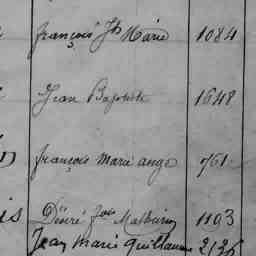 françois Jh Marie 1084
Jean Baptiste 1648
françois marie ange 761
is Désiré Mathurin 1193
Jean Marie Guillaume 2136